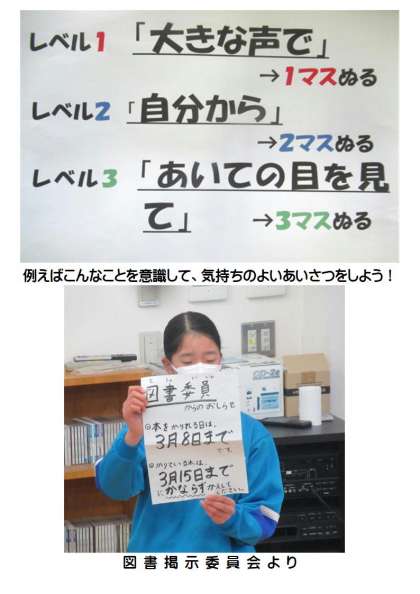 レベル1 「大きな声で」
→1マスぬる
レベル2 「自分から」
→2マスぬる
レベル3 「あいての目を見
て」 →3マスぬる
例えばこんなことを意識して、気持ちのよいあいさつをしよう！
図書委員
からのおしらせ
本をかりれる日は、
3月8日まで
です。
かりている本は、
3月15日まで
にかならずかえして
ください。
図書掲示委員会より